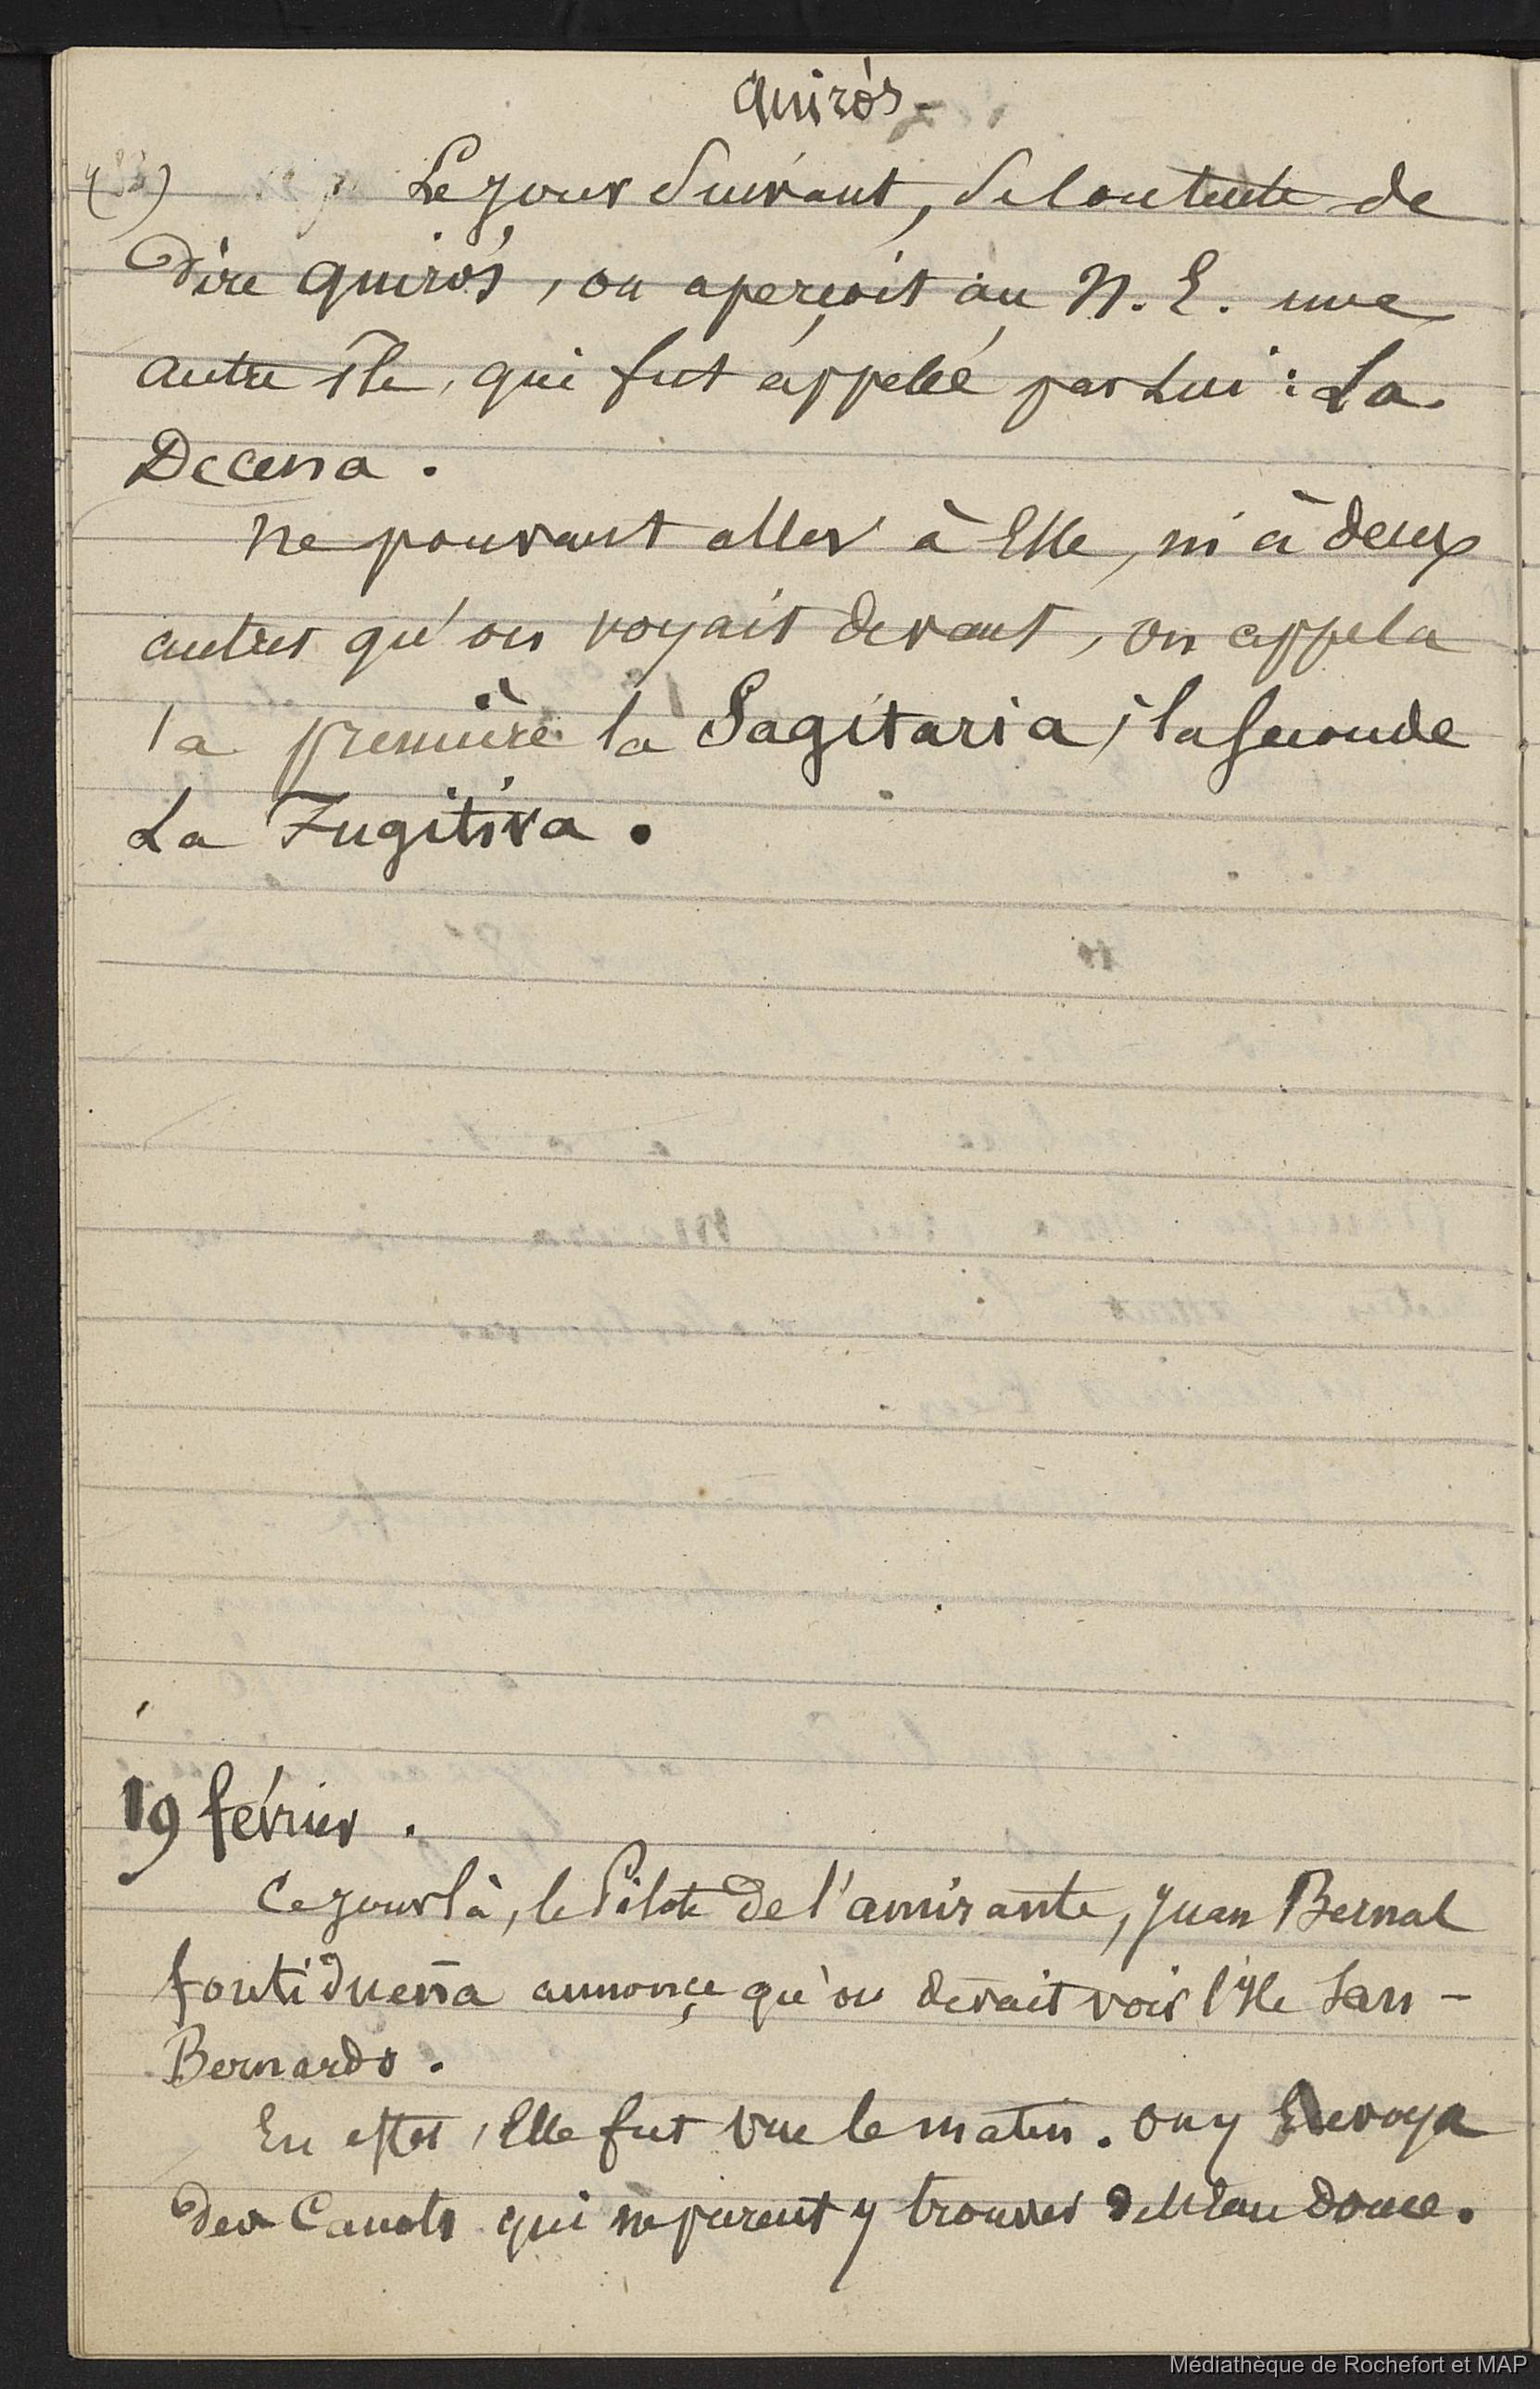 Quirós -
Le jour suivant, de
Dire Quirós, on aperçoit au N. E. une
autre île, qui fut appelée par Lui : La
Decena .
Ne pouvant aller à Elle, ni à deux
autres qu'on voyait devant, on appela
la première la Sagitaria, la seconde
La Fugitiva .
19 février .
Ce jour là, le Pilote de l'amirante, Juan Bernal
fontidueña annonça qu'on devait voir l'île San -
Bernardo .
En effet, Elle fut vue le matin . On y Envoya
des Canots qui ne purent y trouver de l'Eau douce .
Médiathèque de Rochefort et MAP